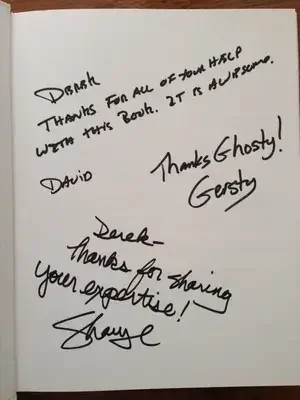 DEREK
THANKS FOR ALL OF YOUR HELP
WITH THIS BOOK. IT IS AWESOME.
DAVID
Thanks Ghosty!
Gersty
Derek-
Thanks for sharing
your expertise!